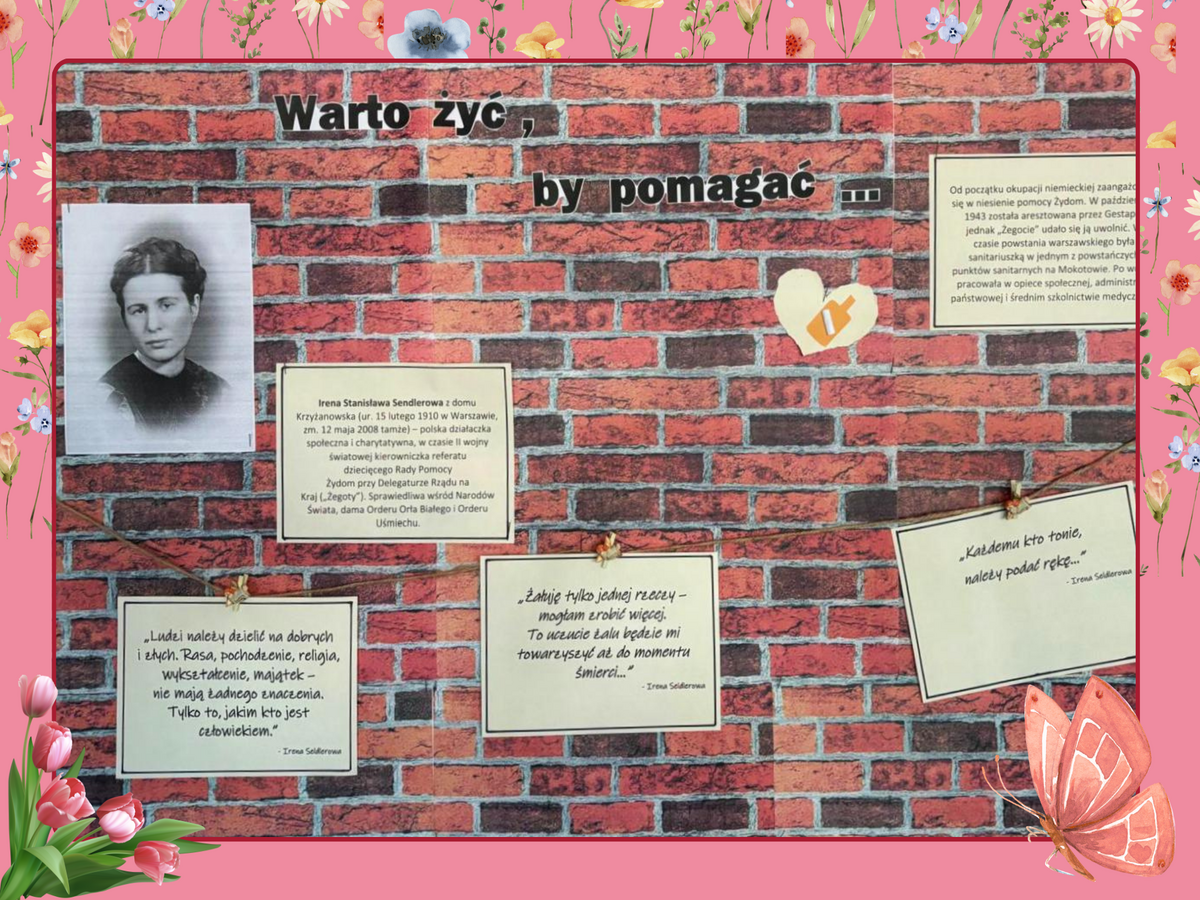 Warto żyć ,
by pomagać ...
Od początku okupacji niemieckiej
się w niesienie pomocy Żydom. W
1943 została aresztowana przez
jednak „Żegocie” udało się ją uwolnić.
czasie powstania warszawskiego była
sanitariuszką w jednym z
punktów sanitarnych na Mokotowie. Po
pracowała w opiece społecznej,
państwowej i średnim szkolnictwie
Irena Stanisława Sendlerowa z domu
Krzyżanowska (ur. 15 lutego 1910 w Warszawie,
zm. 12 maja 2008 tamże) – polska działaczka
społeczna i charytatywna, w czasie II wojny
światowej kierowniczka referatu
dziecięcego Rady Pomocy
Żydom przy Delegaturze Rządu na
Kraj („Żegoty”). Sprawiedliwa wśród Narodów
Świata, dama Orderu Orła Białego i Orderu
Uśmiechu.
„Ludzi należy dzielić na dobrych
i złych. Rasa, pochodzenie, religia,
wykształcenie, majątek –
nie mają żadnego znaczenia.
Tylko to, jakim kto jest
człowiekiem.”
- Irena Seldlerowa
„Żałuję tylko jednej rzeczy –
mogłam zrobić więcej.
To uczucie żalu będzie mi
towarzyszyć aż do momentu
śmierci...”
- Irena Seldlerowa
„Każdemu kto tonie,
należy podać rękę...”
- Irena Seldlerowa